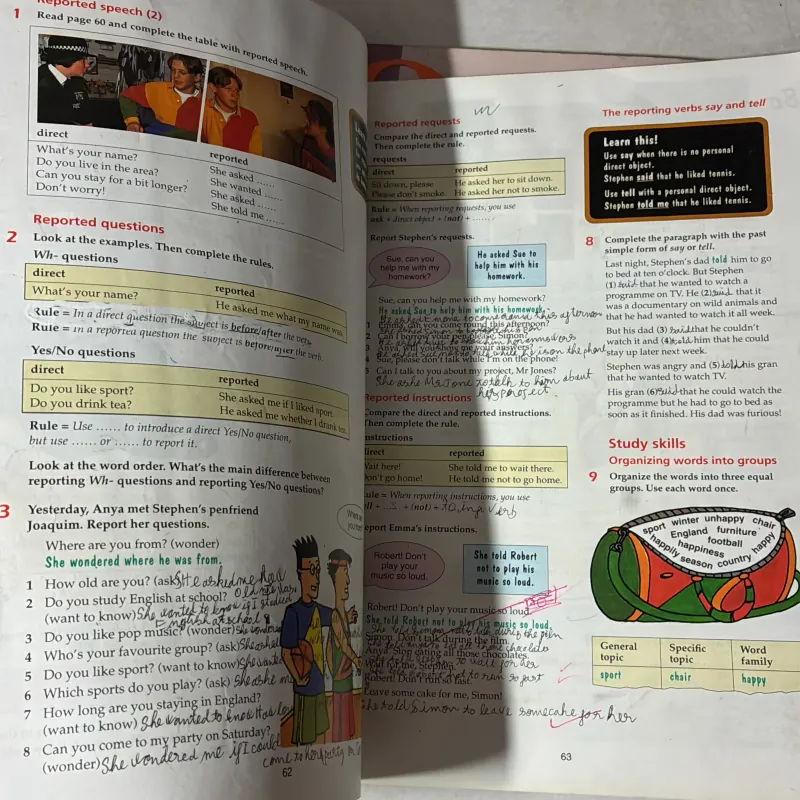 Reported speech (2)
1 Read page 60 and complete the table with reported speech.
direct
reported
What's your name?
She asked ......
Do you live in the area?
She wanted ......
Can you stay for a bit longer?
She asked ......
Don't worry!
She told me ......
Reported questions
2 Look at the examples. Then complete the rules.
Wh- questions
direct
reported
What's your name?
He asked me what my name was.
Rule = In a direct question the subject is before/after the verb.
Rule = in a reported question the subject is before/after the verb.
Yes/No questions
direct
reported
Do you like sport?
She asked me if I liked sport.
Do you drink tea?
He asked me whether I drank tea.
Rule = Use ...... to introduce a direct Yes/No question,
but use ...... or ...... to report it.
Look at the word order. What's the main difference between
reporting Wh- questions and reporting Yes/No questions?
3 Yesterday, Anya met Stephen's penfriend
Joaquim. Report her questions.
Where are you from? (wonder)
She wondered where he was from.
1 How old are you? (ask)
2 Do you study English at school?
(want to know) She wanted to know if I studied
English at school
3 Do you like pop music? (wonder) She wondered
4 Who's your favourite group? (ask)
5 Do you like sport? (want to know) She wanted
6 Which sports do you play? (ask) She asked me
7 How long are you staying in England?
(want to know) She wanted to know How long
8 Can you come to my party on Saturday?
(wonder) She wondered me if I could
come to her party on
62
Reported requests
Compare the direct and reported requests.
Then complete the rule.
requests
direct
reported
Sit down, please.
He asked her to sit down.
Please don't smoke.
He asked her not to smoke.
Rule = When reporting requests, you use
ask + direct object + (not) + ...... .
Report Stephen's requests.
Sue, can you
help me with my
homework?
He asked Sue to
help him with his
homework.
Sue, can you help me with my homework?
He asked Sue to help him with his homework.
1 Emma, can you come round this afternoon?
2 Can I borrow your pen, please, Simon?
3 Anya, will you show me your answers?
4 Sue, please don't talk while I'm on the phone!
5 Can I talk to you about my project, Mr Jones?
She ashe Mr Jone to talk to him about
her project
Reported instructions
Compare the direct and reported instructions.
Then complete the rule.
instructions
direct
reported
Wait here!
She told me to wait there.
Don't go home!
He told me not to go home.
Rule = When reporting instructions, you use
tell + ...... + (not) + to inf verb
Report Emma's instructions.
Robert! Don't
play your
music so loud.
She told Robert
not to play his
music so loud.
Robert! Don't play your music so loud.
She told Robert not to play his music so loud.
Simon. Don't talk during the film.
Anya. Stop eating all those chocolates.
Wait for me, Stephen.
Robert! Don't run so fast!
Leave some cake for me, Simon!
She told Simon to leave somecake for her
The reporting verbs say and tell
Learn this!
Use say when there is no personal
direct object.
Stephen said that he liked tennis.
Use tell with a personal direct object.
Stephen told me that he liked tennis.
8 Complete the paragraph with the past
simple form of say or tell.
Last night, Stephen's dad told him to go
to bed at ten o'clock. But Stephen
(1) said that he wanted to watch a
programme on TV. He (2) said that it
was a documentary on wild animals and
that he had wanted to watch it all week.
But his dad (3) said that he couldn't
watch it and (4) told him that he could
stay up later next week.
Stephen was angry and (5) told his gran
that he wanted to watch TV.
His gran (6) said that he could watch the
programme but he had to go to bed as
soon as it finished. His dad was furious!
Study skills
Organizing words into groups
9 Organize the words into three equal
groups. Use each word once.
sport winter unhappy chair
England furniture
football
happiness
happily season country happy
General
topic
Specific
topic
Word
family
sport
chair
happy
63